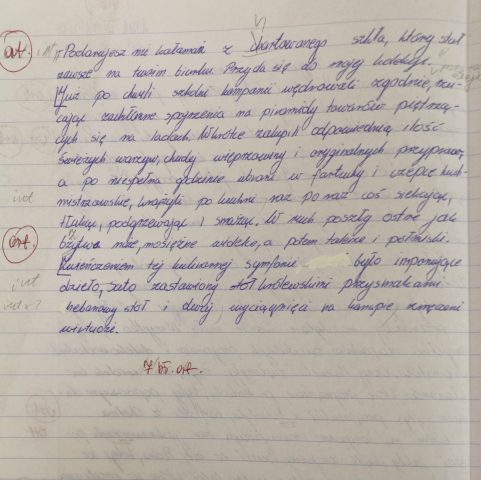 ort. "Podarujesz mi kałamarz z hartowanego szkła, który stał
zawsze na twoim biurku. Przyda się do mojej kolekcji.
Już po chwili szkolni kompani wędrowali zgodnie, rzu-
cając zachłanne spojrzenia na piramidy towarów piętrzą-
cych się na ladach. Wkrótce zakupili odpowiednią ilość
świeżych warzyw, chudej wieprzowiny i oryginalnych przypraw,
a po niespełna godzinie ubrani w fartuchy i czepce kuch-
mistrzowskie, krążyli po kuchni raz po raz coś siekając,
tłukąc, podgrzewając i smażąc. W ruch poszły ostre jak
ort. brzytwa noże, mosiężne widelce, a potem talerze i półmiski.
Zwieńczeniem tej kulinarnej symfonii było imponujące
dzieło, suto zastawiony stoł królewskimi przysmakami
hebanowy stoł i dwaj, wyciągnięci na kanapie, zmęczeni
wirtuozi.
7 bł. ort.